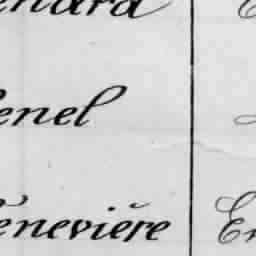 enard
enel
enevière En